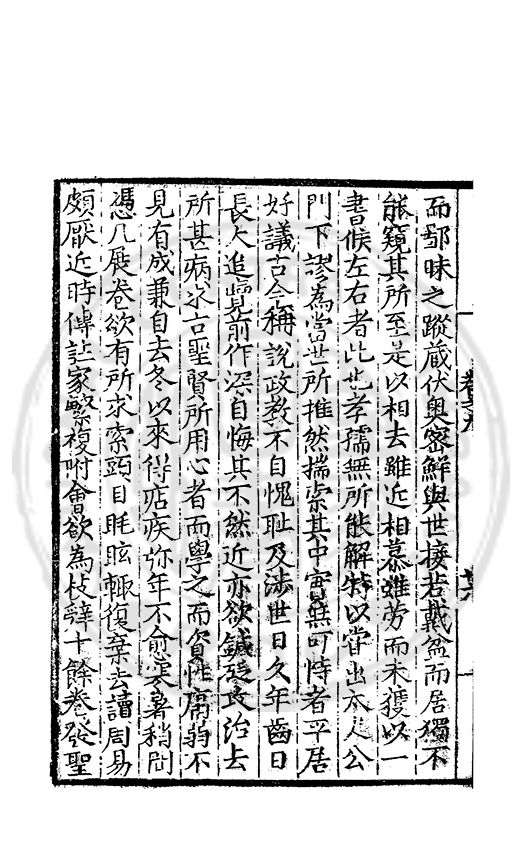 而鄙昧之蹤蔵伏奥密鮮與世接若戴盆而居獨不
能窺其所至是以相去雖近相慕雖勞而未獲以一
書候左右者此也孝孺無所能解特以嘗出太史公
門下謬為當世所推然揣索其中實無可恃者平居
好議古今稱說政教不自愧耻及渉世日久年齒日
長大追覽前作深自悔其不然近亦欲鍼砭長治去
所甚病求古聖賢所用心者而學之而資性孱弱不
見有成兼自去冬以來得痁疾弥年不愈寒暑稍間
慿几展卷欲有所求索頭目眊眩輙復棄去讀周易
頗厭近時傳註家繁複附會欲為枝辭十餘卷發聖